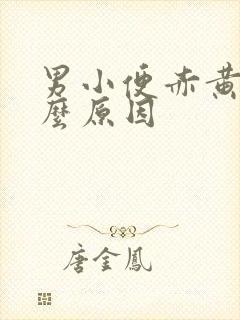 男小便赤黄
麼原因
唐金鳳